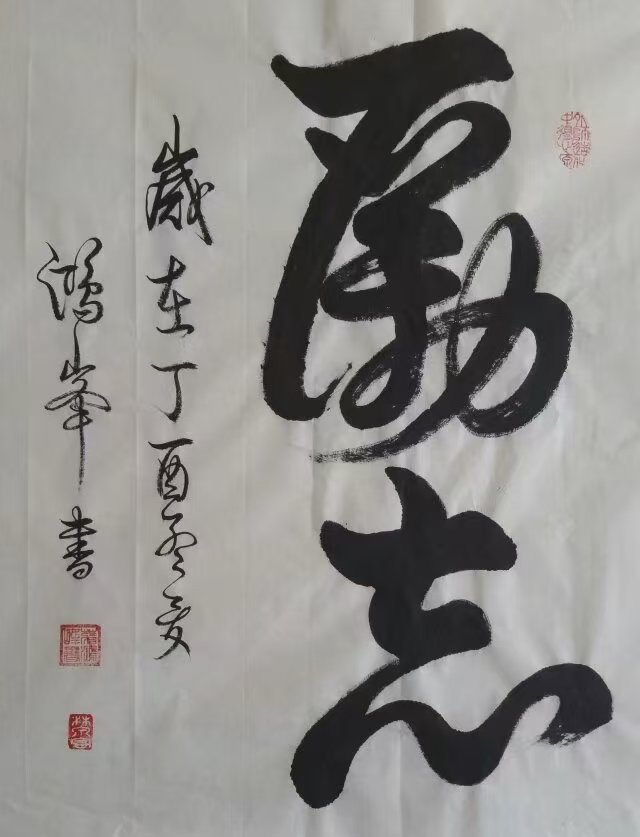 勵志
歲在丁酉冬月
鴻峯書